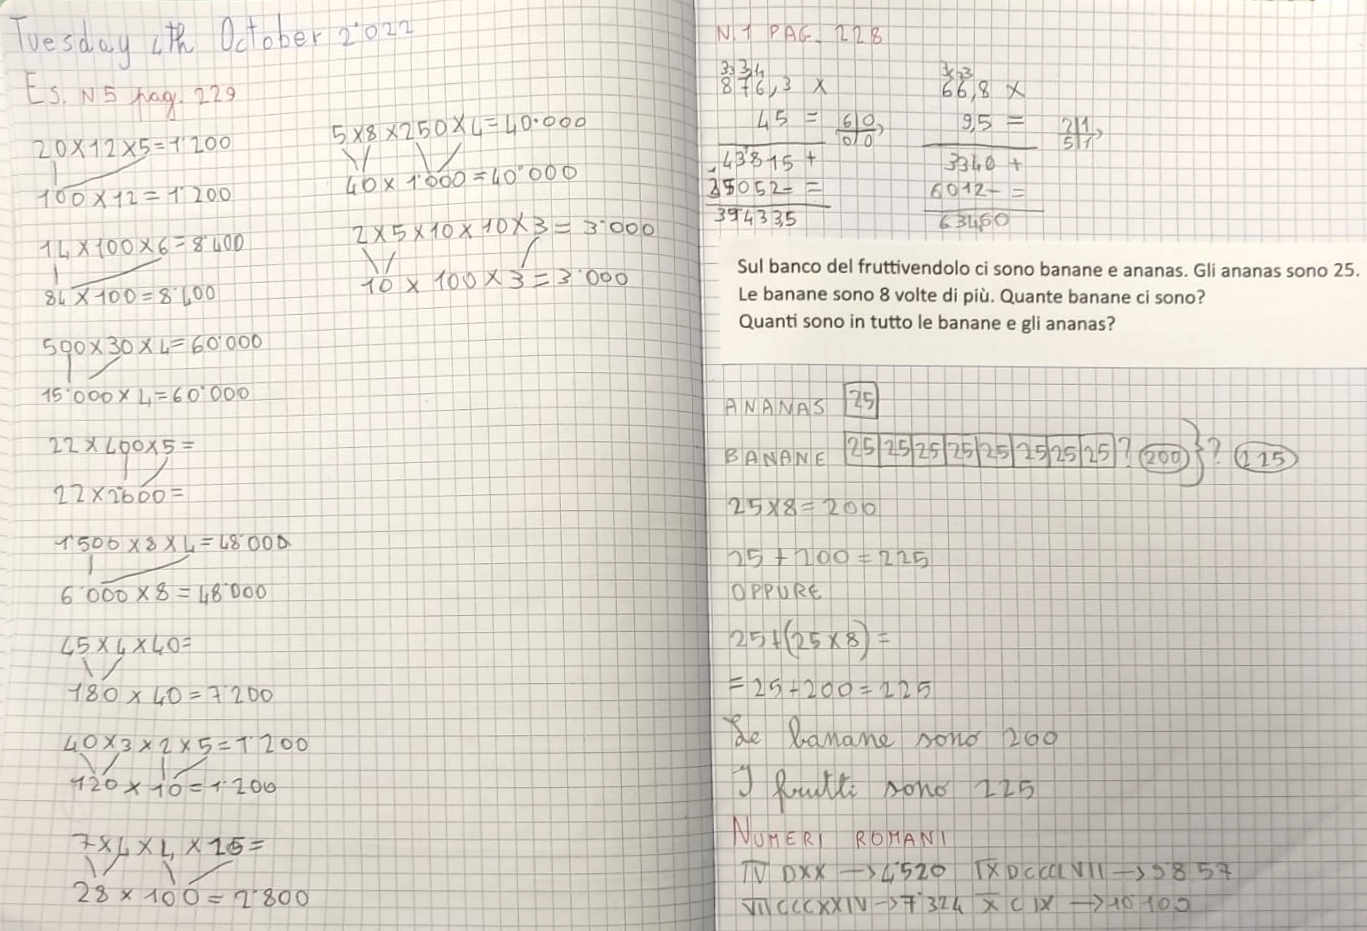 Tuesday 4th October 2022
Es. N5 pag. 229
20x12x5=1˙200
100x12=1˙200
14x100x6=8˙400
84x100=8˙400
500x30x4=60˙000
15˙000x4=60˙000
22x400x5=
22x2600=
1˙500x8x4=48˙000
6˙000x8=48˙000
45x4x40=
180x40=7˙200
40x3x2x5=1˙200
120x10=1˙200
7x4x4x25=
28x100=2˙800
5x8x250x4=40˙000
40x1˙000=40˙000
2x5x10x10x3=3˙000
10x100x3=3˙000
N.1 PAG. 228
334
876,3 x
45 = 6|0
43815 + 0|0
35052- =
39433,5
66,8 x
9,5 = 2|1
3340 + 5|1
6012- =
634,60
Sul banco del fruttivendolo ci sono banane e ananas. Gli ananas sono 25.
Le banane sono 8 volte di più. Quante banane ci sono?
Quanti sono in tutto le banane e gli ananas?
ANANAS 25
BANANE 25 25 25 25 25 25 25 25 ? 200 } ? 225
25x8=200
25+200=225
OPPURE
25+(25x8)=
=25+200=225
Le banane sono 200
I frutti sono 225
NUMERI ROMANI
I̅V̅ DXX → 4˙520 I̅X̅DCCCLVII → 9˙857
V̅I̅I̅CCCXXIV → 7˙324 X̅ C IX → 10˙100